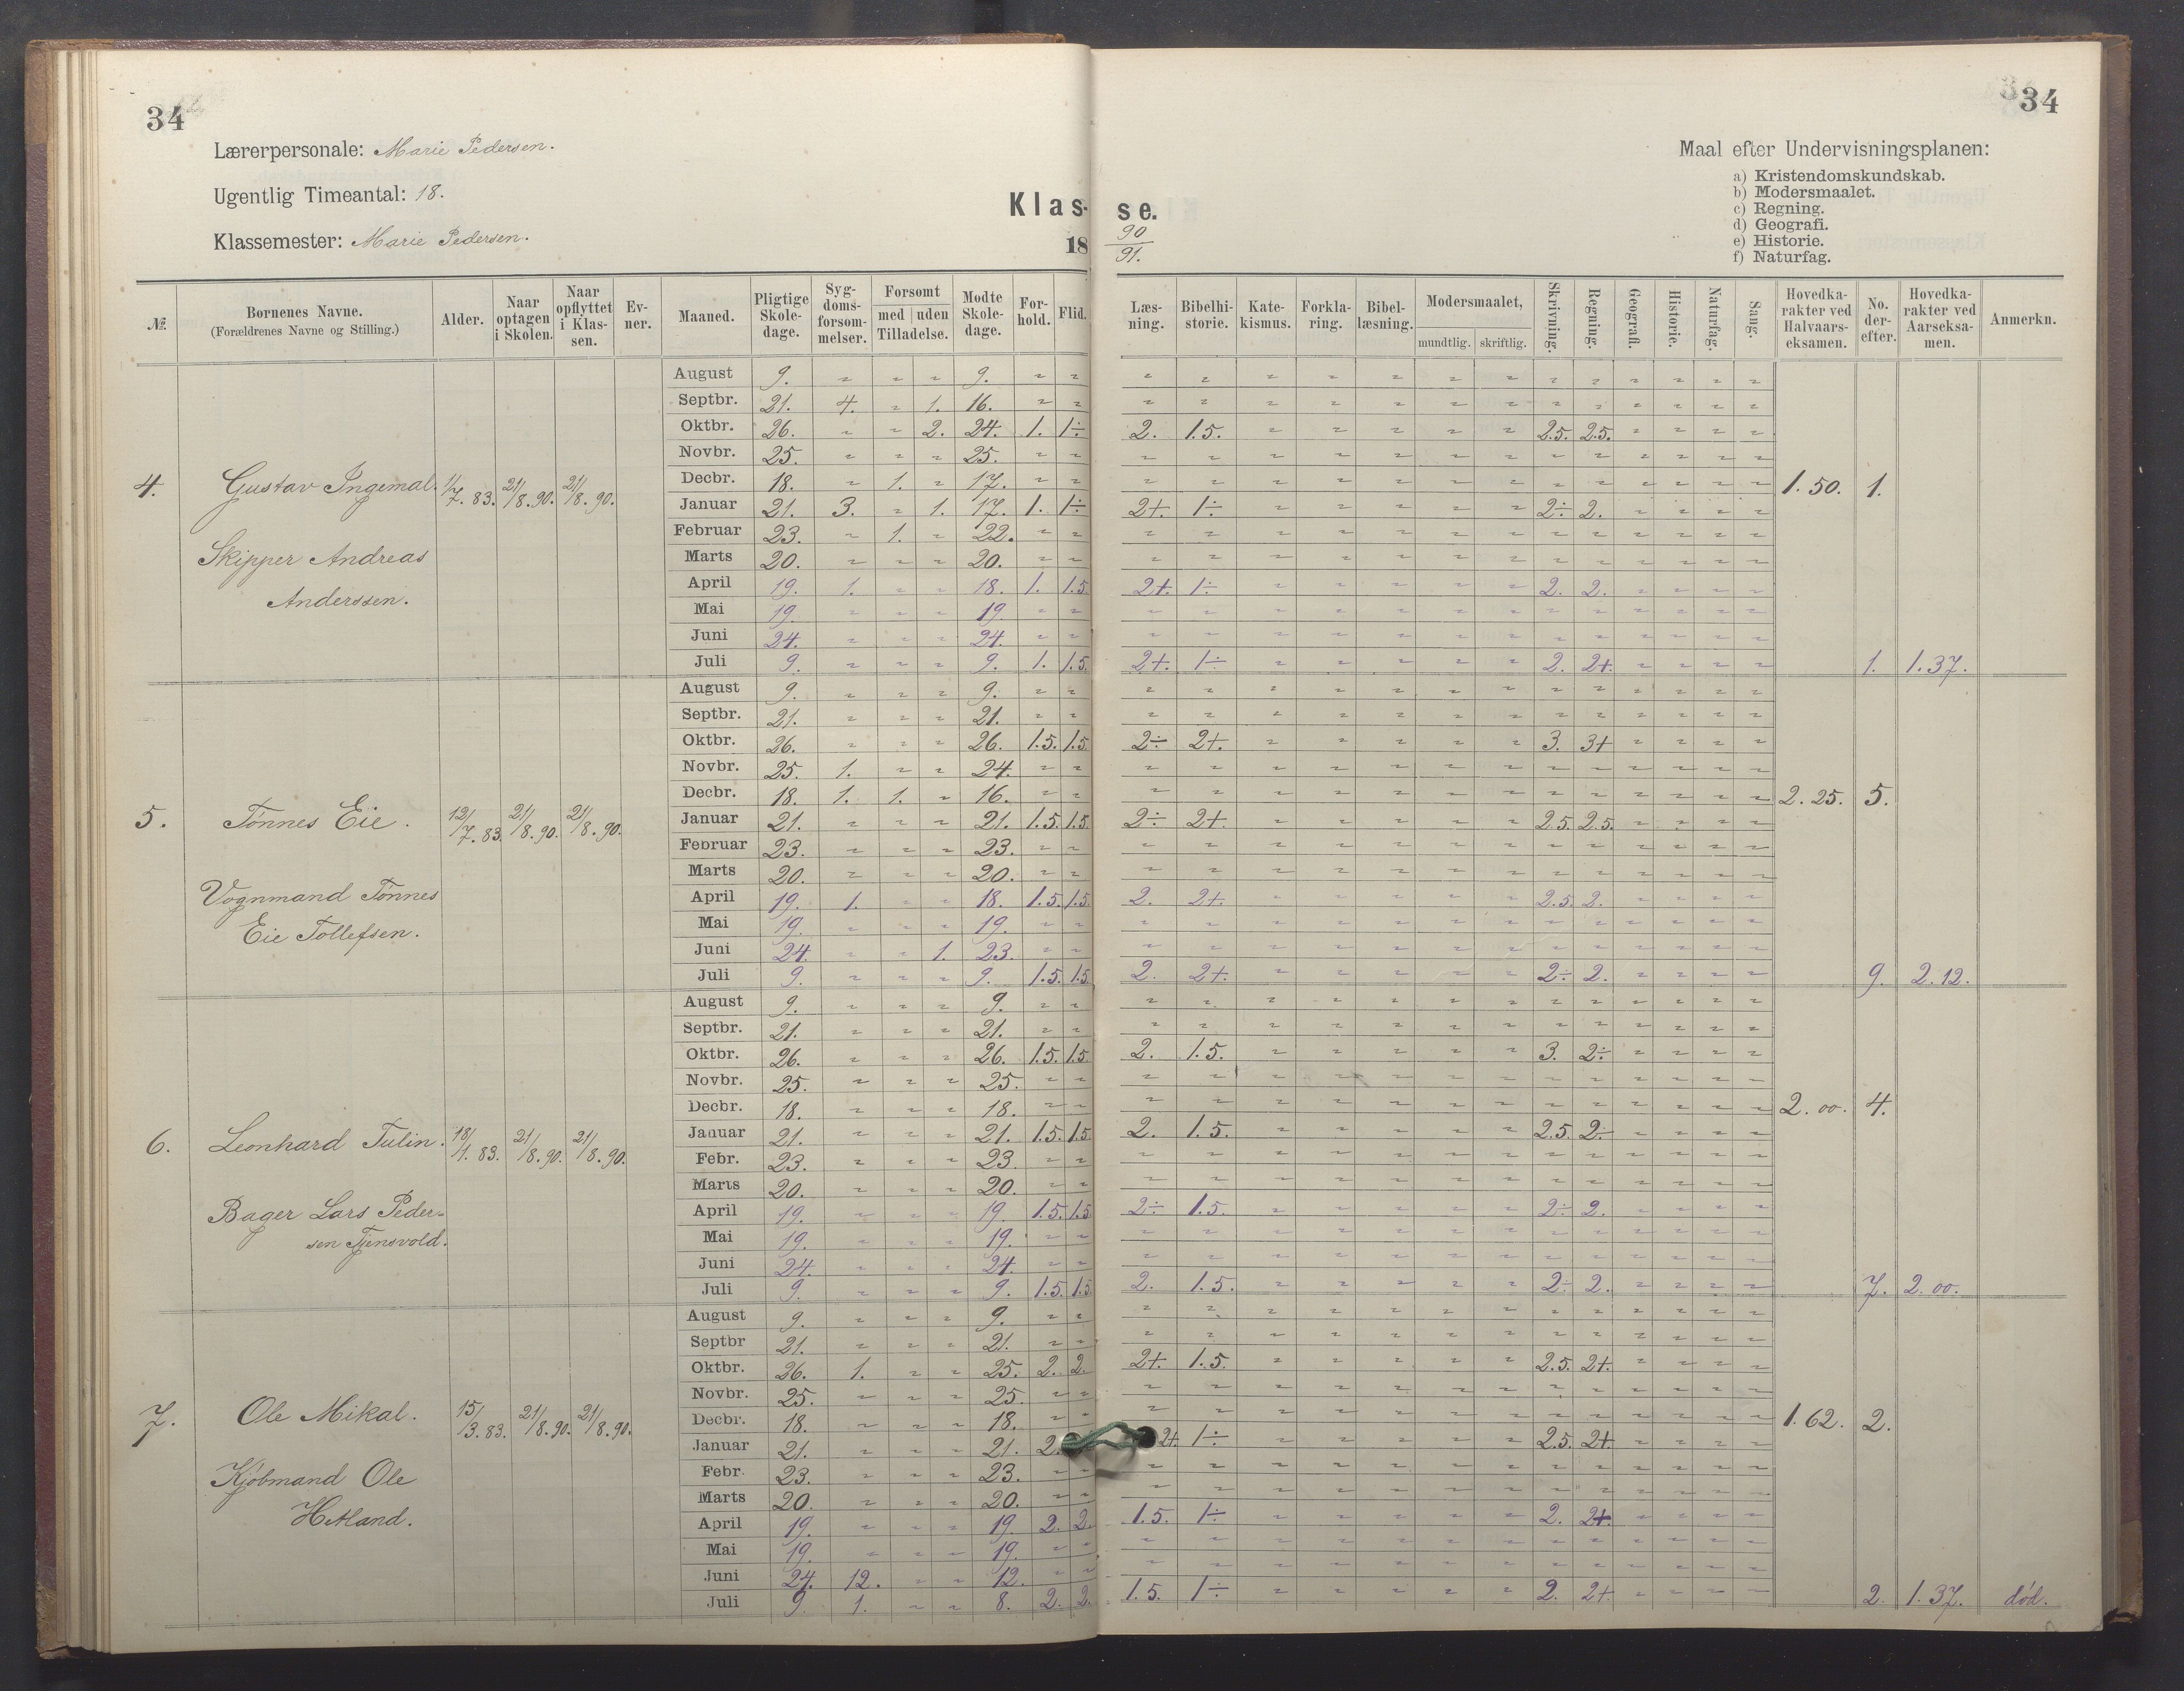 34
34
Lærerpersonale: Marie Pedersen.
Ugentlig Timeantal: 18.
Klassemester: Marie Pedersen.
Klas-se.
18 90/91.
Maal efter Undervisningsplanen:
a) Kristendomskundskab.
b) Modersmaalet.
c) Regning.
d) Geografi.
e) Historie.
f) Naturfag.
№ | Børnenes Navne. (Forældrenes Navne og Stilling.) | Alder. | Naar optagen i Skolen. | Naar opflyttet i Klassen. | Evner. | Maaned. | Pligtige Skoledage. | Sygdomsforsømmelser. | Forsømt med Tilladelse. | uden Tilladelse. | Mødte Skoledage. | Forhold. | Flid. | Læsning. | Bibelhistorie. | Katekismus. | Forklaring. | Bibellæsning. | Modersmaalet, mundtlig. | skriftlig. | Skrivning. | Regning. | Geografi. | Historie. | Naturfag. | Sang. | Hovedkarakter ved Halvaarseksamen. | No. derefter. | Hovedkarakter ved Aarseksamen. | Anmerkn.
4. Gustav Ingemal. 1/7. 83. 21/8. 90. 21/8. 90.
Skipper Andreas
Anderssen.
August 9. " " " 9. " " " " " " " " " " " " " " "
Septbr. 21. 4. " 1. 16. " " " " " " " " " " " " " " "
Oktbr. 26. " " 2. 24. 1. 1÷ 2. 1.5. " " " " " 2.5. 2.5. " " " "
Novbr. 25. " " " 25. " " " " " " " " " " " " " " "
Decbr. 18. " 1. " 17. " " " " " " " " " " " " " " " 1.50. 1.
Januar 21. 3. " 1. 17. 1. 1÷ 2+. 1÷ " " " " " 2÷ 2. " " " "
Februar 23. " 1. " 22. " " " " " " " " " " " " " " "
Marts 20. " " " 20. " " " " " " " " " " " " " " "
April 19. 1. " " 18. 1. 1.5. 2+. 1÷ " " " " " 2. 2. " " " "
Mai 19. " " " 19. " " " " " " " " " " " " " " "
Juni 24. " " " 24. " " " " " " " " " " " " " " "
Juli 9. " " " 9. 1. 1.5. 2+. 1÷ " " " " " 2. 2+. " " " " 1. 1.37.
5. Tønnes Eie. 12/7. 83. 21/8. 90. 21/8. 90.
Vognmand Tønnes
Eie Tollefsen.
August 9. " " " 9. " " " " " " " " " " " " " " "
Septbr. 21. " " " 21. " " " " " " " " " " " " " " "
Oktbr. 26. " " " 26. 1.5. 1.5. 2÷ 2+. " " " " " 3. 3+ " " " "
Novbr. 25. 1. " " 24. " " " " " " " " " " " " " " "
Decbr. 18. 1. 1. " 16. " " " " " " " " " " " " " " " 2.25. 5.
Januar 21. " " " 21. 1.5. 1.5. 2÷ 2+. " " " " " 2.5. 2.5. " " " "
Februar 23. " " " 23. " " " " " " " " " " " " " " "
Marts 20. " " " 20. " " " " " " " " " " " " " " "
April 19. 1. " " 18. 1.5. 1.5. 2. 2+. " " " " " 2.5. 2. " " " "
Mai 19. " " " 19. " " " " " " " " " " " " " " "
Juni 24. " " 1. 23. " " " " " " " " " " " " " " "
Juli 9. " " " 9. 1.5. 1.5. 2. 2+. " " " " " 2÷ 2. " " " " 9. 2.12.
6. Leonhard Tulin. 18/1. 83. 21/8. 90. 21/8. 90.
Bager Lars Peder-
sen Tjensvold.
August 9. " " " 9. " " " " " " " " " " " " " " "
Septbr. 21. " " " 21. " " " " " " " " " " " " " " "
Oktbr. 26. " " " 26. 1.5. 1.5. 2. 1.5. " " " " " 3. 2÷ " " " "
Novbr. 25. " " " 25. " " " " " " " " " " " " " " "
Decbr. 18. " " " 18. " " " " " " " " " " " " " " " 2.00. 4.
Januar 21. " " " 21. 1.5. 1.5. 2. 1.5. " " " " " 2.5. 2÷ " " " "
Febr. 23. " " " 23. " " " " " " " " " " " " " " "
Marts 20. " " " 20. " " " " " " " " " " " " " " "
April 19. " " " 19. 1.5. 1.5. 2÷ 1.5. " " " " " 2÷ 2. " " " "
Mai 19. " " " 19. " " " " " " " " " " " " " " "
Juni 24. " " " 24. " " " " " " " " " " " " " " "
Juli 9. " " " 9. 1.5. 1.5. 2. 1.5. " " " " " 2÷ 2. " " " " 7. 2.00.
7. Ole Mikal. 15/3. 83. 21/8. 90. 21/8. 90.
Kjøbmand Ole
Hetland.
August 9. " " " 9. " " " " " " " " " " " " " " "
Septbr 21. " " " 21. " " " " " " " " " " " " " " "
Oktbr. 26. 1. " " 25. 2. 2. 2+. 1.5. " " " " " 2.5. 2+. " " " "
Novbr. 25. " " " 25. " " " " " " " " " " " " " " "
Decbr. 18. " " " 18. " " " " " " " " " " " " " " " 1.62. 2.
Januar 21. " " " 21. 2. 2+. 1÷ " " " " " 2.5. 2+. " " " "
Febr. 23. " " " 23. " " " " " " " " " " " " " " "
Marts 20. " " " 20. " " " " " " " " " " " " " " "
April 19. " " " 19. 2. 2. 1.5. 1÷ " " " " " 2. 2+. " " " "
Mai 19. " " " 19. " " " " " " " " " " " " " " "
Juni 24. 12. " " 12. " " " " " " " " " " " " " " "
Juli 9. 1. " " 8. 2. 2. 1.5. 1÷ " " " " " 2. 2+. " " " " 2. 1.37. død.